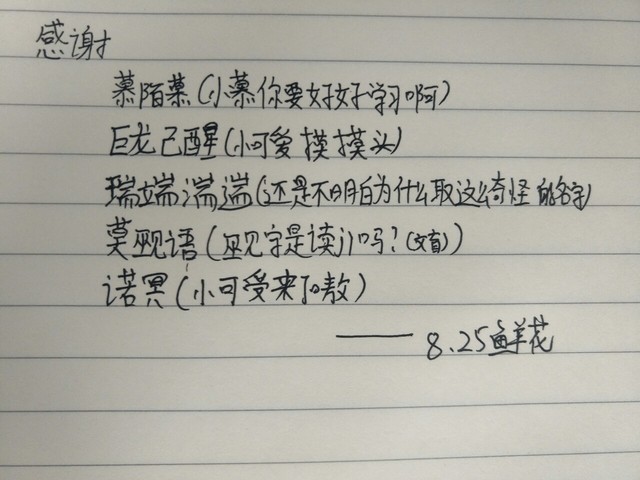 感谢
慕陌慕(小慕你要好好学习啊)
巨龙已醒(小可爱摸摸头)
瑞端湍遄(还是不明白为什么取这么奇怪的名字)
莫觋语(觋字是读ji吗?(文盲))
诺冥(小可爱来了嗷)
——8.25鲜花